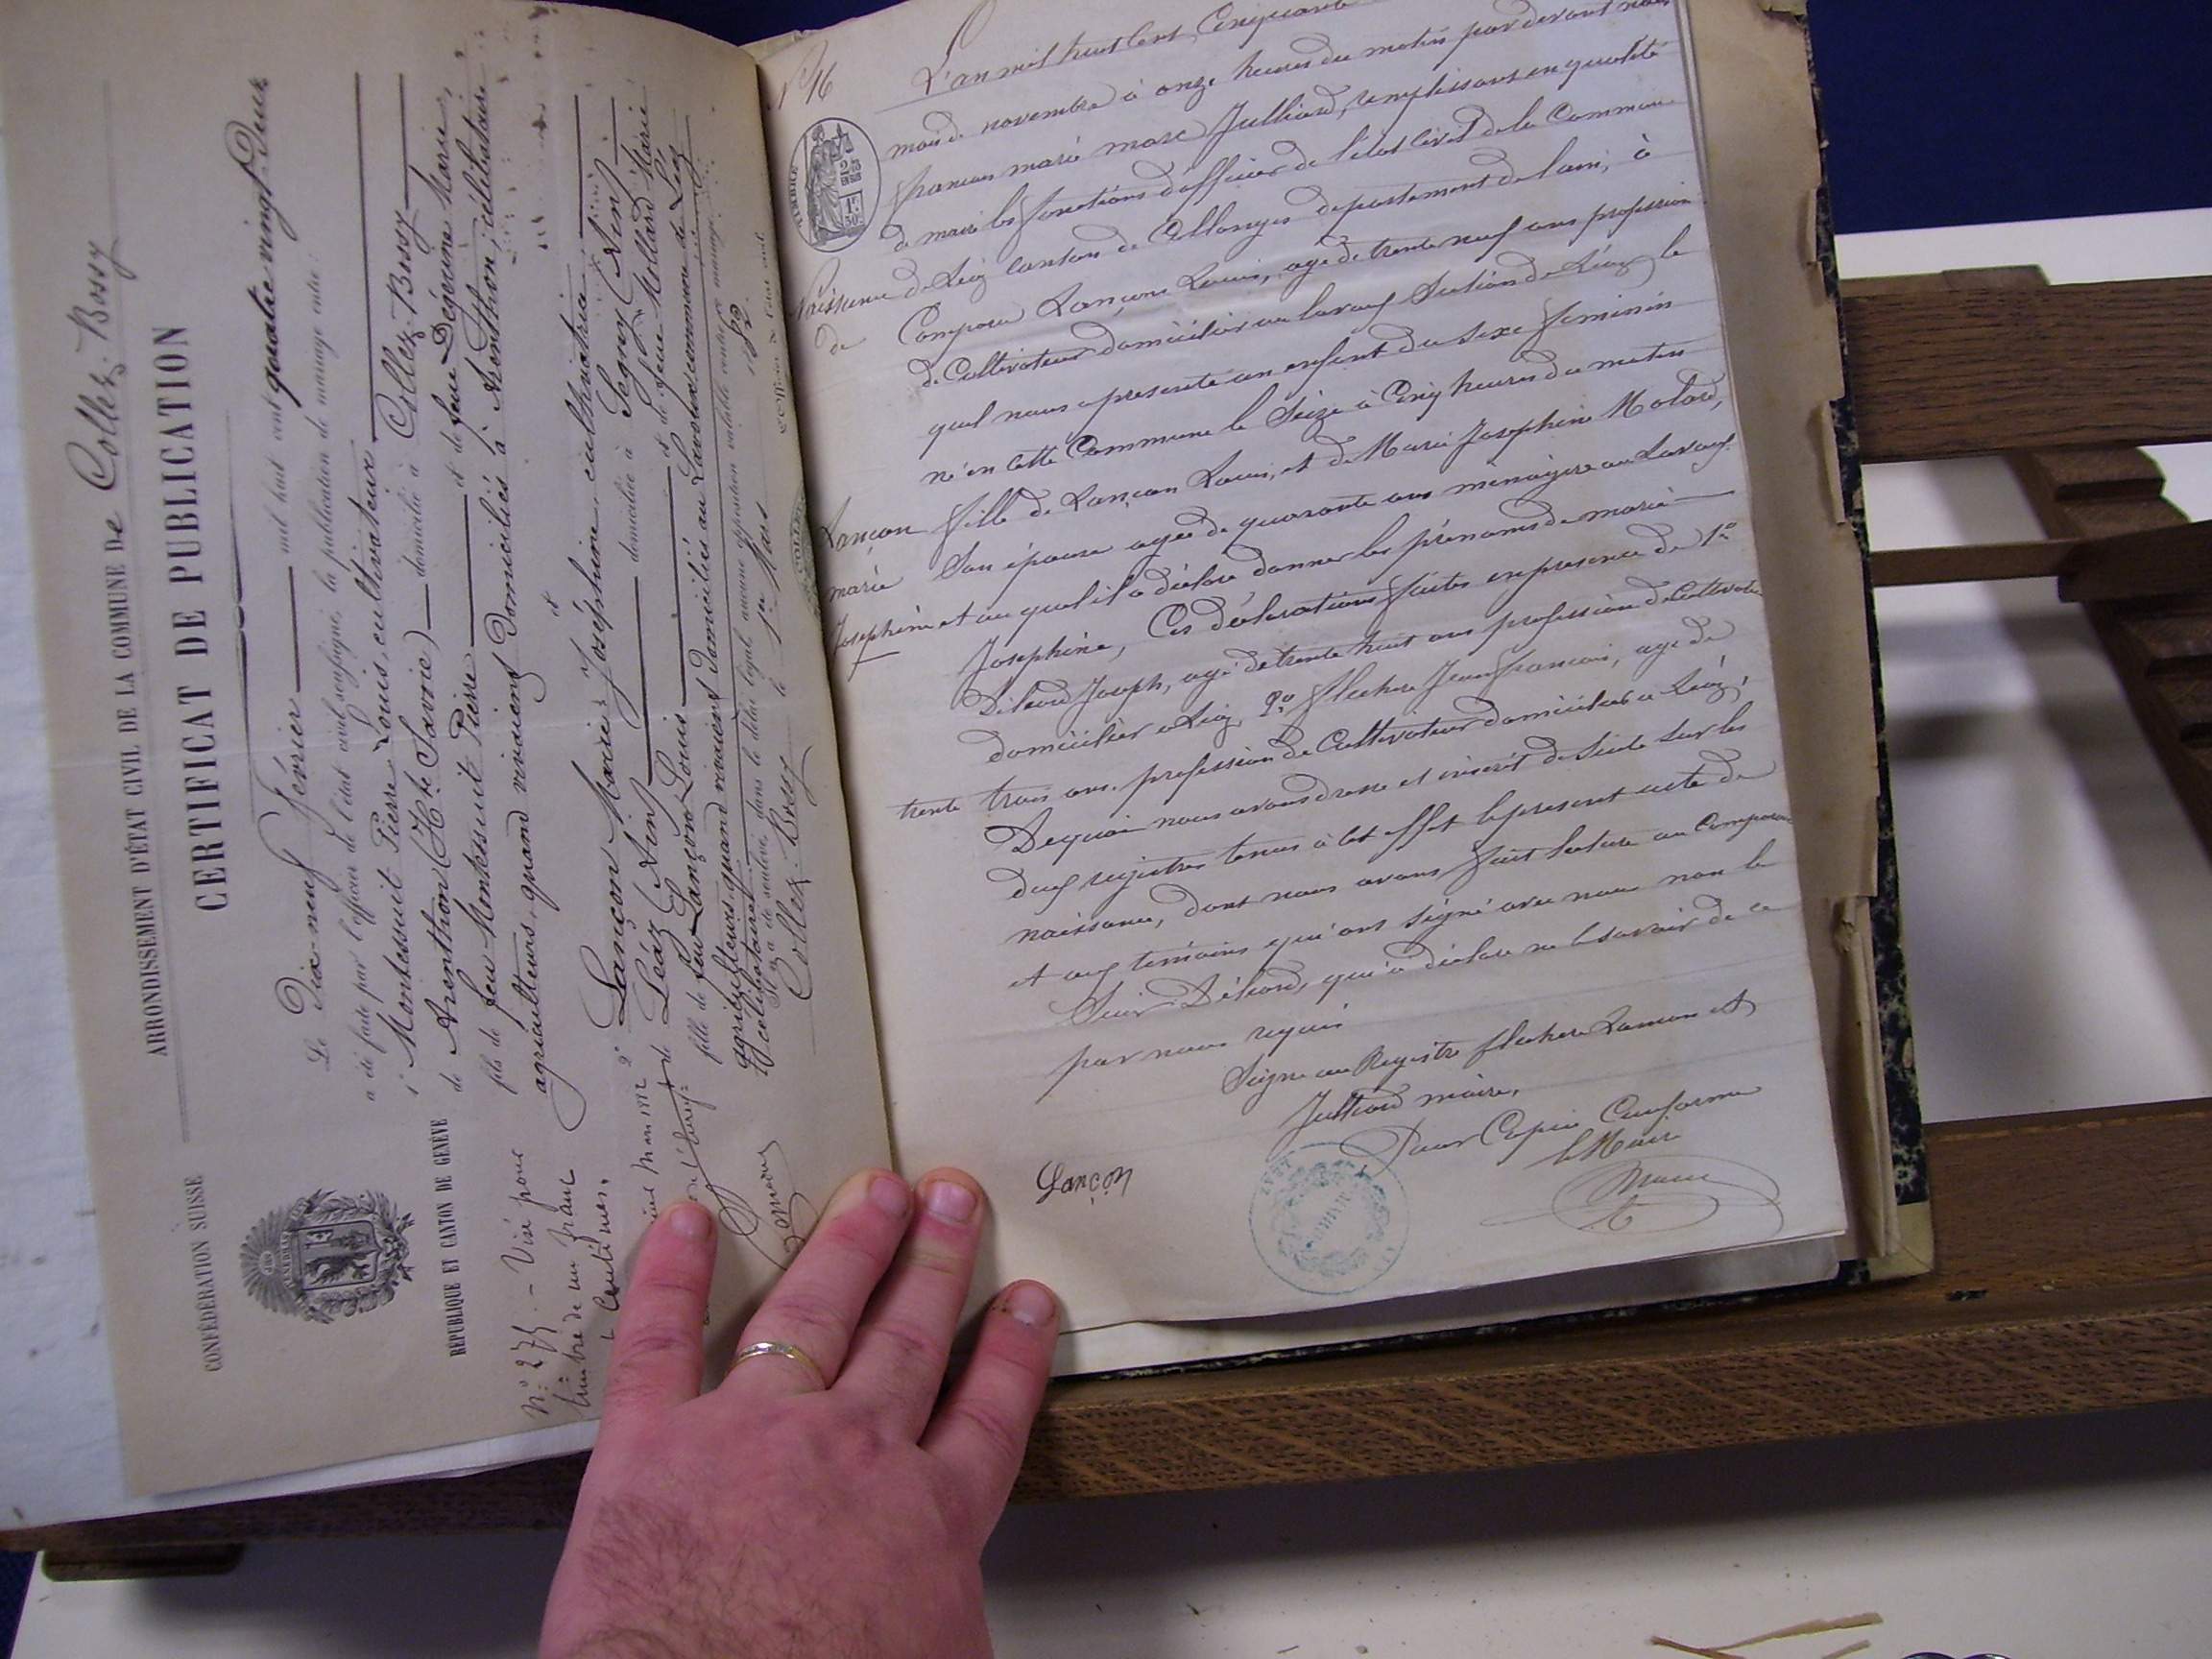 CONFÉDÉRATION SUISSE
RÉPUBLIQUE ET CANTON DE GENÈVE
ARRONDISSEMENT D'ÉTAT CIVIL DE LA COMMUNE De Collex-Bossy
CERTIFICAT DE PUBLICATION
Le Dix-neuf février mil huit cent quatre vingt Deux
a été faite par l'officier de l'état civil soussigné, la publication de mariage entre:
1° Montessuit Pierre Louis, cultivateur
de Arenthon (Hte Savoie) domicilié à Collex-Bossy
fils de feu Montessuit Pierre et de feue Dégerine Marie,
agriculteurs, quand vivaient domiciliés à Arenthon, célibataire
et
2° Lançon Marie Joséphine, cultivatrice
de Léaz (Ain) domiciliée à Segny (Ain)
fille de feu Lançon Louis et de feue Mollard Marie
agriculteurs, quand vivaient domiciliés au commune de Léaz
célibataire
Il n'a été soulevé, dans le délai légal, aucune opposition valable contre ce mariage.
Collex-Bossy le 1er Mars 1882.
L'Officier de l'état civil
N° 275. - Visé pour
timbre de un franc
centimes.
N° 16
TIMBRE
L'an mil huit cent cinquante
mois de novembre à onze heures du matin par devant nous
francois marie marc Julliard, remplissant en qualité
de maire les fonctions d'officier de l'état civil de la Commune
Naissance
de
Lançon
marie
Josephine
de Léaz canton de Collonges departement de l'ain, à
Comparu Lançon Louis, age de trente neuf ans profession
de Cultivateur domicilier au lavoux Section de Léaz le
quel nous a presenté un enfant du sexe feminin
né en cette Commune le Seize à Cinq heures du matin
fille de Lançon Louis, et de Marie Josephine Molard,
Son épouse agée de quarante ans ménagere au Lavoux
et au quel il a déclaré donner les prénoms de marie
Josephine, Ces déclarations faites en presence de 1°
Joseph, agé de trente huit ans profession de Cultivateur
domicilier a Léaz, 2° flechere Jean francois, age de
trente trois ans, profession de Cultivateur domicilier a Léaz,
De quoi nous avons dressé et inscrit de suite sur les
deux registres tenus à cet effet le present acte de
naissance, dont nous avons fait lecture au Comparant
et aux témoins qui ont signé avec nous non le
Sieur qui a déclaré ne le savoir de ce
par nous requis
Signé au Registre flechere Lancon et
Julliard maire,
Pour Copie Conforme
le Maire
Lançon